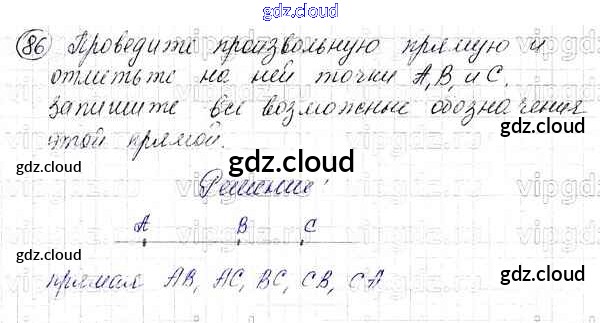 gdz.cloud
86 Проведите произвольную прямую и
отметьте на ней точки A, B, и C.
gdz.cloud
gdz.cloud
Запишите все возможные обозначения
gdz.cloud
этой прямой.
gdz.cloud
Решение:
A B C
gdz.cloud
gdz.cloud
прямая AB, AC, BC, CB, CA
gdz.cloud